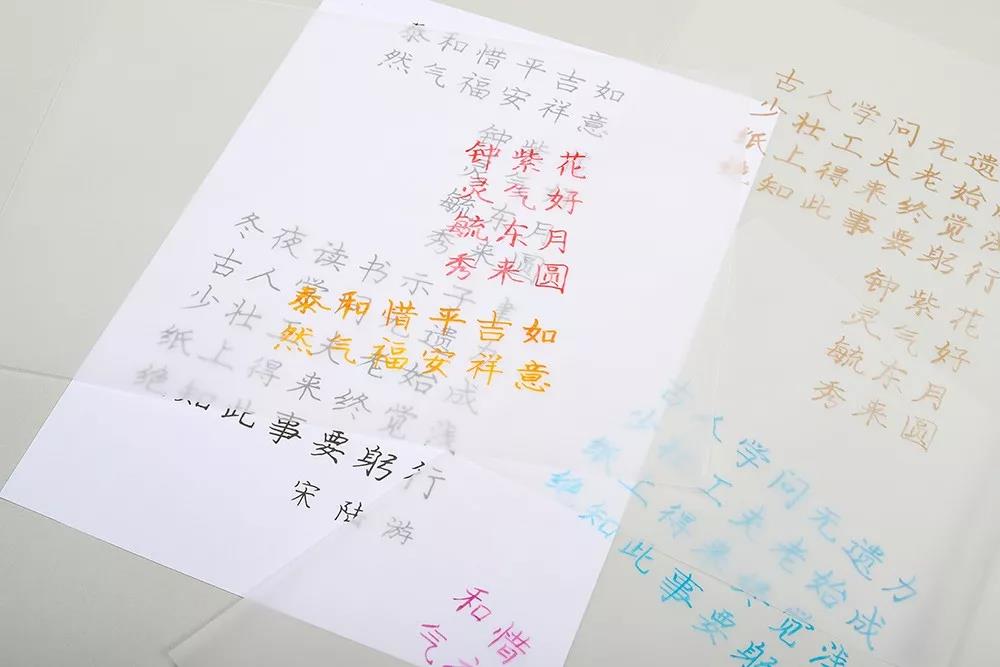 泰和惜平吉如
然气福安祥意
钟紫
灵气
毓东月
秀来圆
钟紫花
灵气好
毓东月
秀来圆
冬夜读书示子聿
古人学问无遗力
泰和惜平吉如
然气福安祥意
少壮工夫老始成
纸上得来终觉浅
绝知此事要躬行
宋 陆游
和惜
气
古人学问无遗
少壮工夫老始
纸上得来终觉浅
绝知此事要躬行
钟紫花
灵气好
毓东月
秀来圆
古人学问无遗力
少壮工夫老始成
纸上得来终觉浅
绝知此事要躬